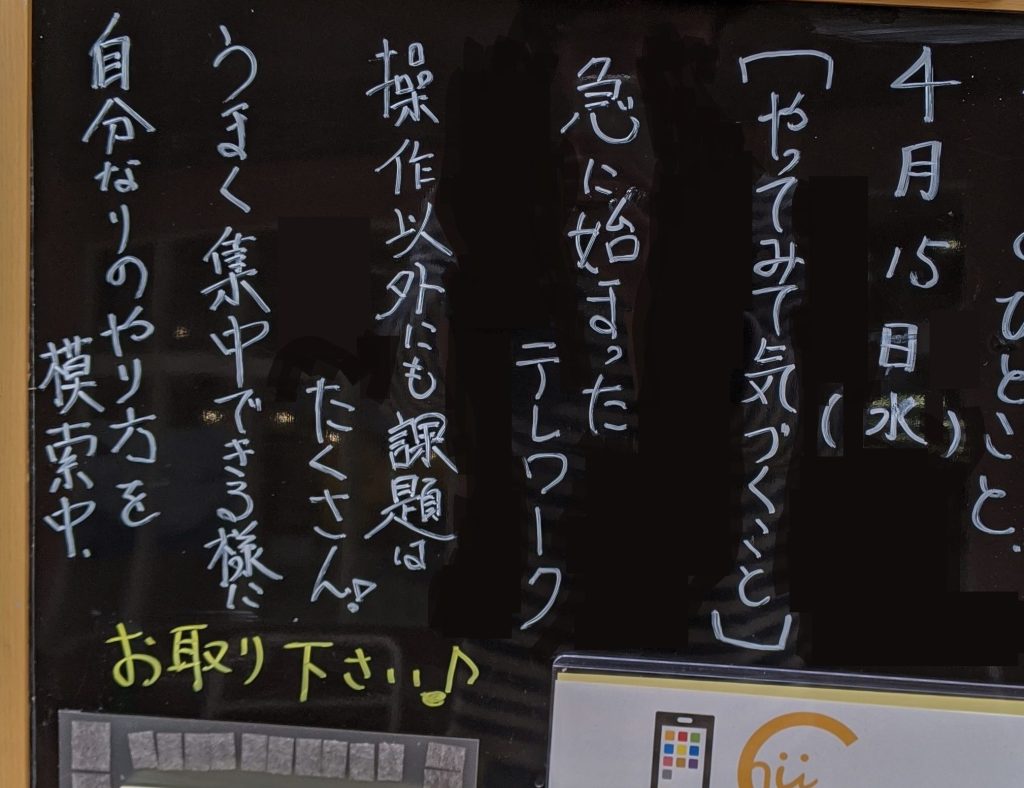 のひとこと.
4月15日(水)
[やってみて気づくこと]
急に始まった
テレワーク
操作以外にも課題は
たくさん!
うまく集中できる様に
自分なりのやり方を
模索中.
お取り下さい♪
hii